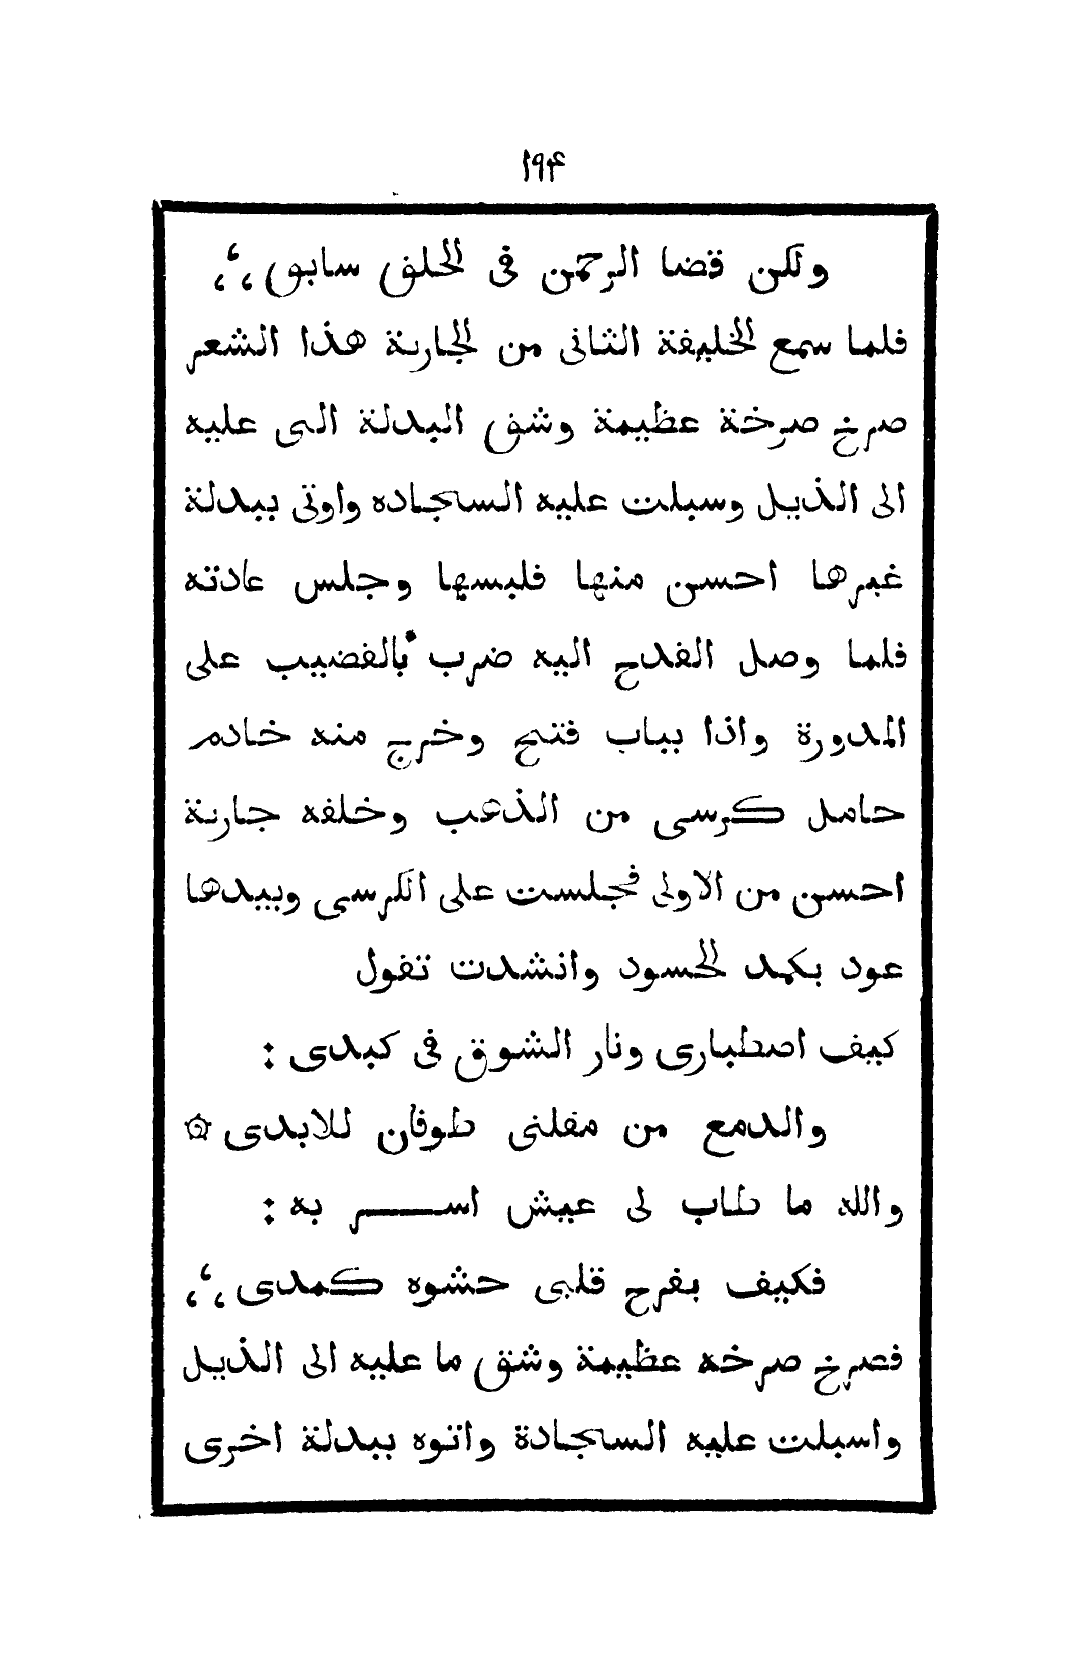 ١٩۴
ولكن قضا الرحمن فى الخلق سابق ،‘،
فلما سمع الخليفة الثانى من الجارية هذا الشعر
صرخ صرخة عظيمة وشق البدلة التى عليه
الى الذيل وسبلت عليه السجاده واوتى ببدلة
غيرها احسن منها فلبسها وجلس عادته
فلما وصل القدح اليه ضرب بالقضيب على
المدورة واذا بباب فتح وخرج منه خادم
حامل كرسى من الذهب وخلفه جارية
احسن من الاولى فجلست على الكرسى وبيدها
عود بكمد الحسود وانشدت تقول
كيف اصطبارى ونار الشوق فى كبدى :
والدمع من مقلتى طوفان للابدى ۞
والله ما طاب لى عيش اســـر به :
فكيف يفرح قلبى حشوه كمدى ،‘،
فصرخ صرخه عظيمة وشق ما عليه الى الذيل
واسبلت عليه السجادة واتوه ببدلة اخرى